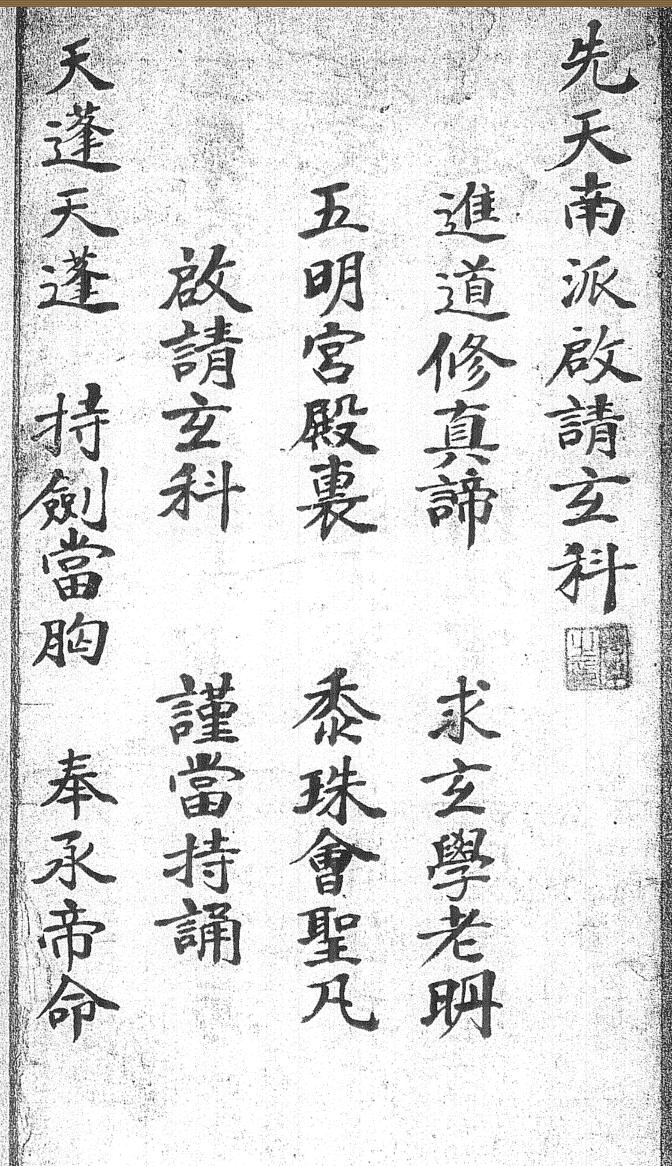 先天南派啟請玄科
進道修真諦　求玄學老聃
五明宮殿裏　黍珠會聖凡
啟請玄科　謹當持誦
天蓬天蓬　持劍當胸　奉承帝命